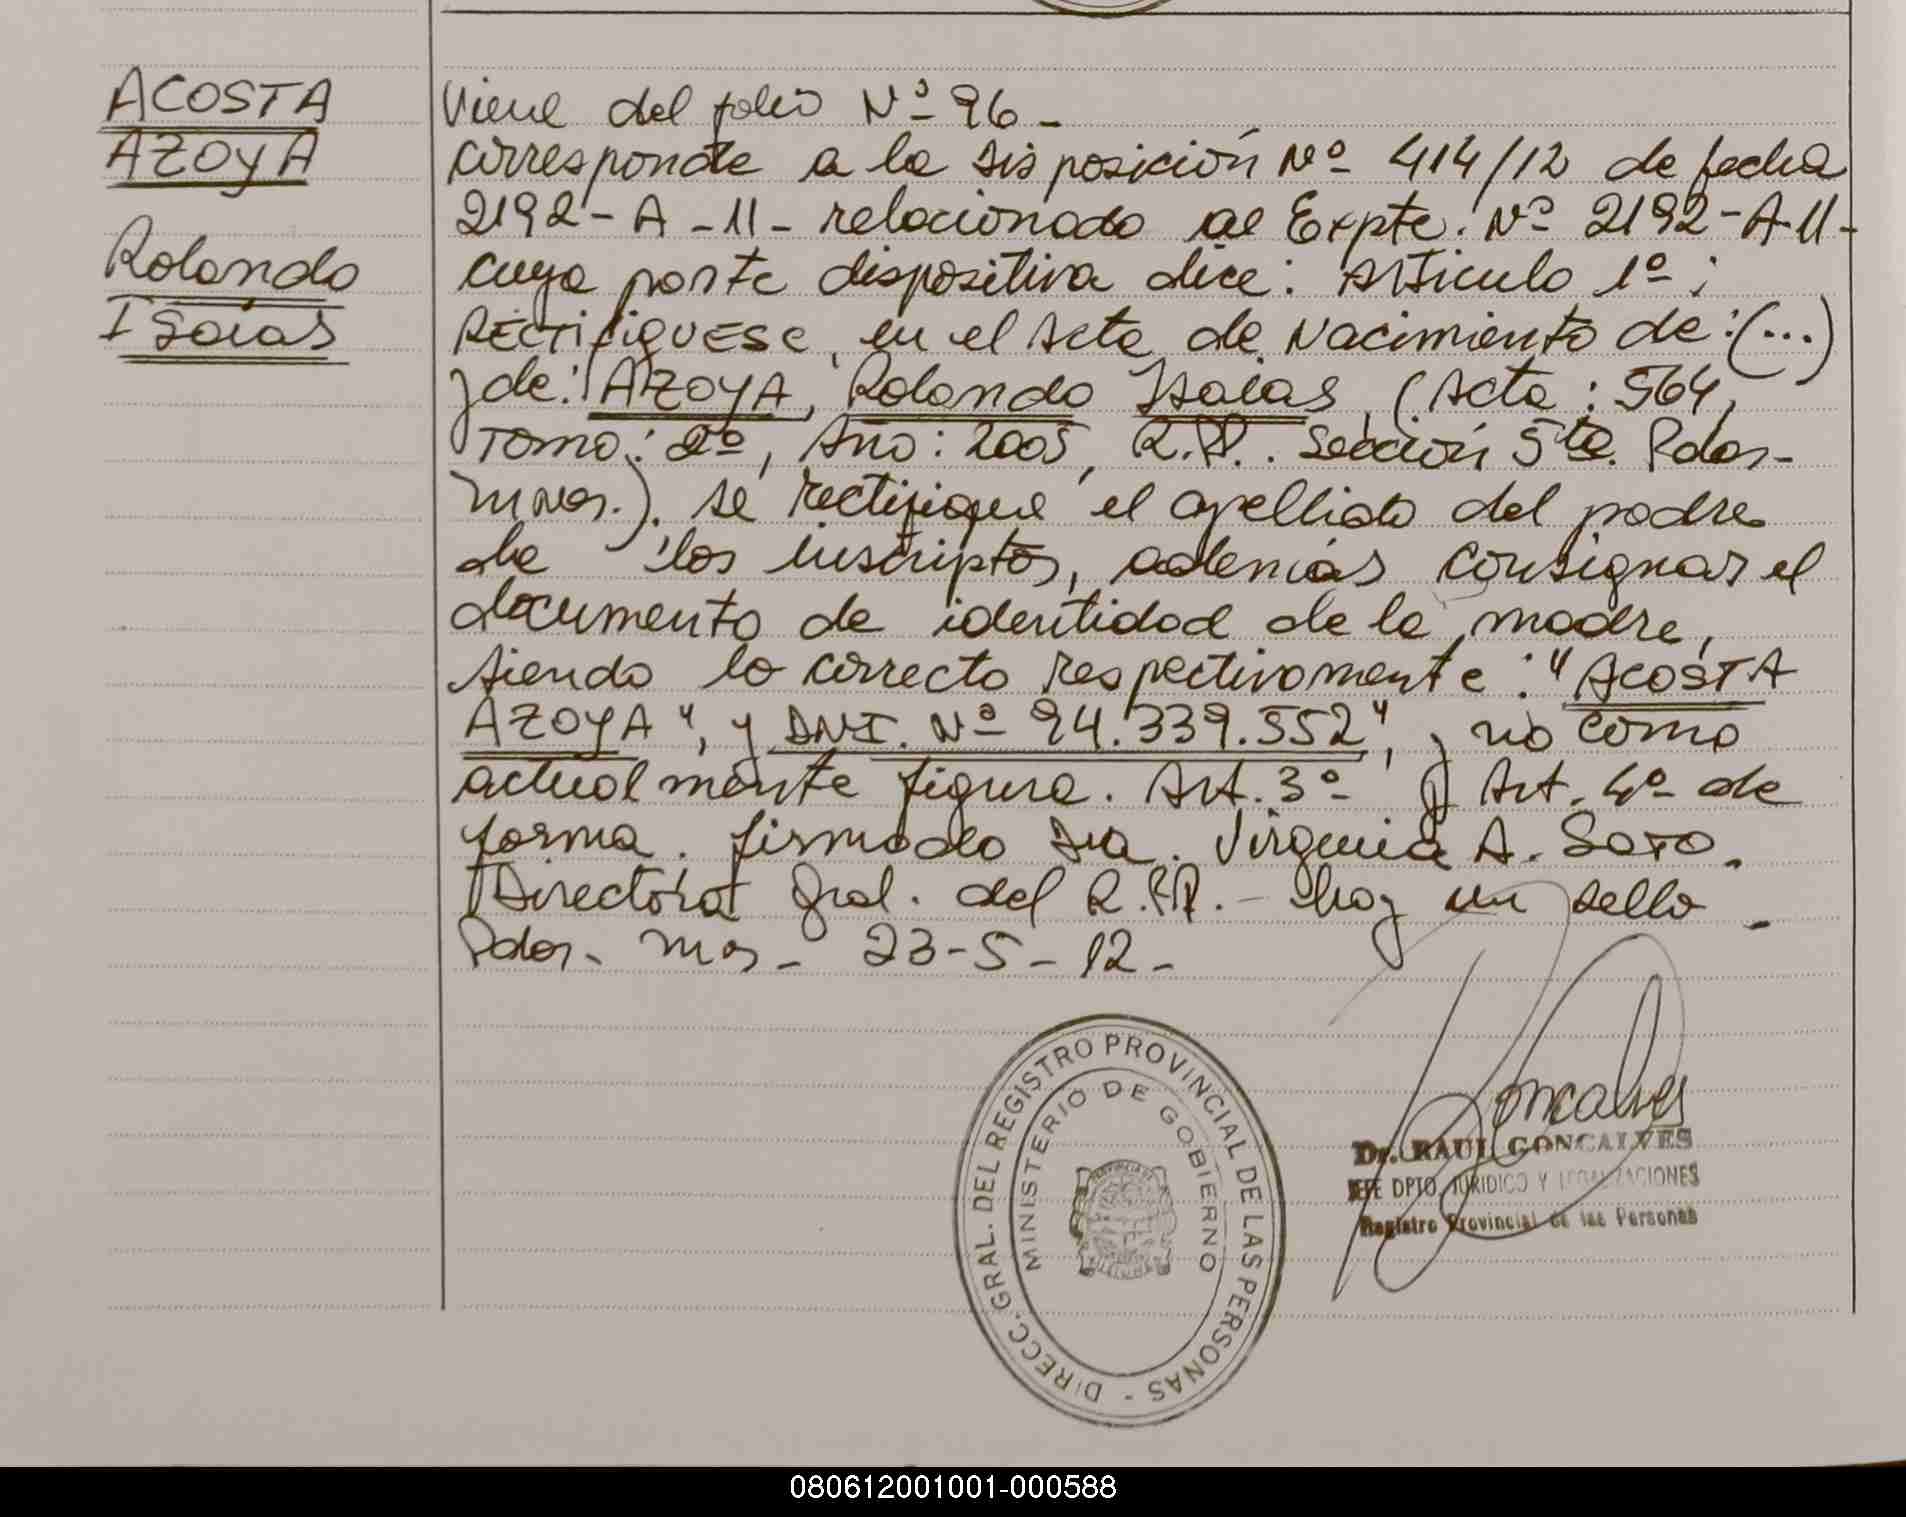 ACOSTA
AZOYA
Rolando
Isaias
Viene del folio Nº 96 -
Corresponde a la Disposición Nº 414/12 de fecha
2192 - A - 11 - relacionado al Expte. Nº 2192 - A - 11 -
cuya parte dispositiva dice: Artículo 1º:
RECTIFIQUESE, en el Acta de Nacimiento de: (...)
y de: AZOYA, Rolando Isaias, (Acta: 564,
Tomo: 2º, Año: 2005, R.P.P. Sección 5ta. Pdas-
Mnes.). se rectifique el apellido del padre
de los inscriptos, además consignar el
documento de identidad de la madre,
siendo lo correcto respectivamente: "ACOSTA
AZOYA", y DNI. Nº 94.339.552", y no como
actualmente figura. Art. 3º y Art. 4º de
forma. firmado Dra. Virginia A. SOTO.
Directora Gral. del R.P.P. - hay un sello.
Pdas. Mnes - 23 - 5 - 12 -
DIRECC. GRAL. DEL REGISTRO PROVINCIAL DE LAS PERSONAS -
MINISTERIO DE GOBIERNO
Goncalves
Dr. RAUL GONCALVES
JEFE DPTO. JURIDICO Y LEGALIZACIONES
Registro Provincial de las Personas
080612001001-000588